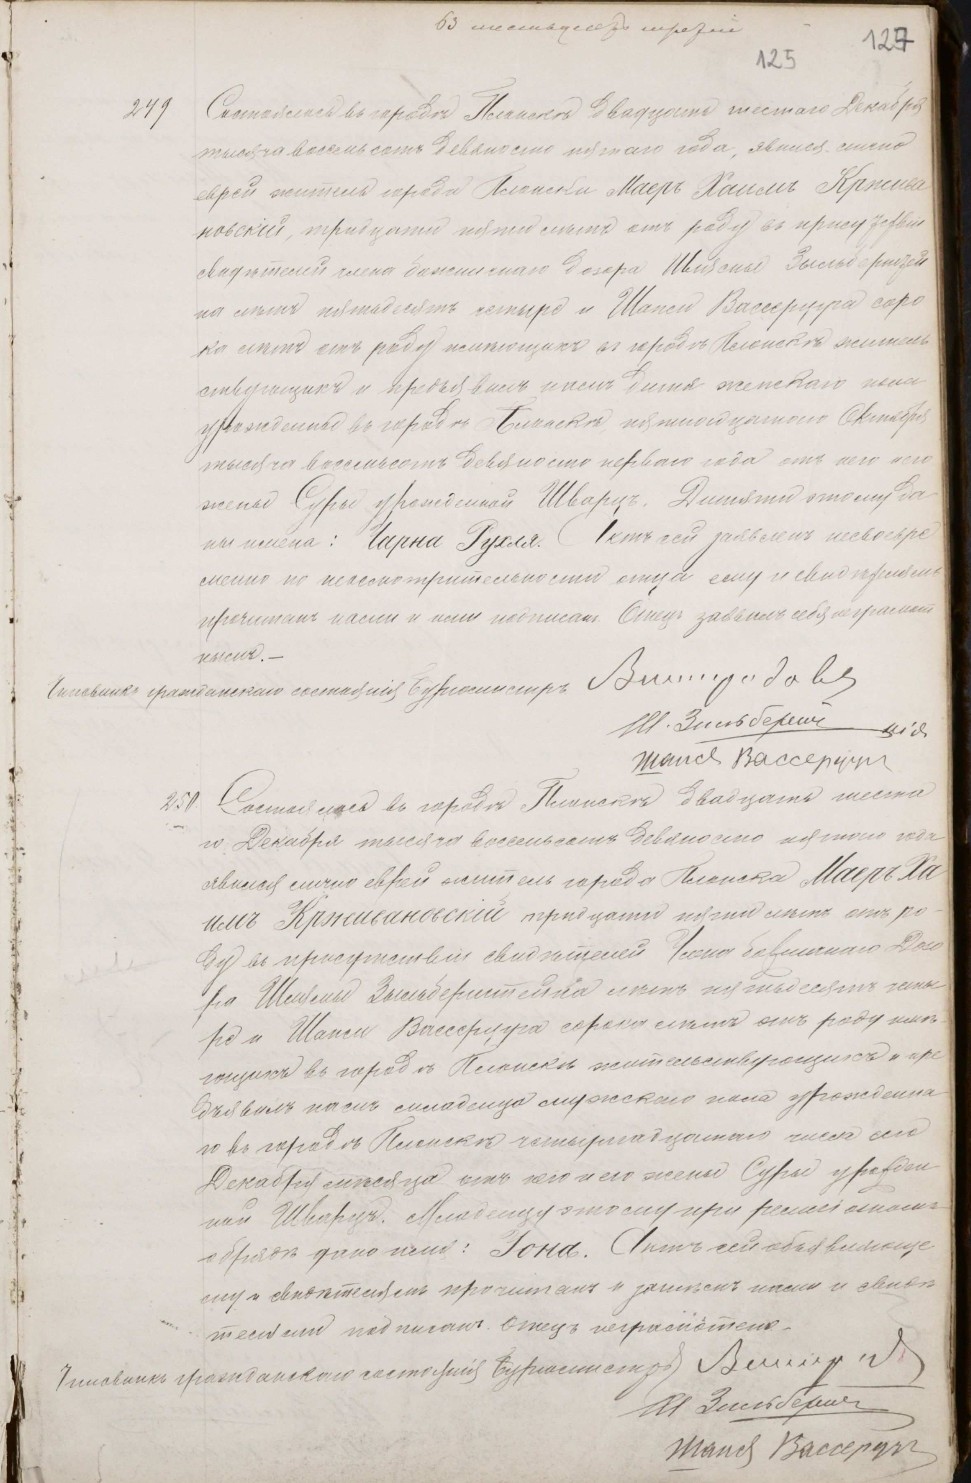 63 шестьдесят третій
125 127
249 Состоялось въ городѣ Плонскѣ двадцать шестаго Декабря
тысяча восемьсотъ девяносто пятаго года, явился лично
еврей житель города Плонска Маеръ Хаимъ Кржива
новскій, тридцати пяти лѣтъ отъ роду въ присутствіи
свидѣтелей члена божничнаго дозора Шлямы Зыльберштей
на лѣтъ пятьдесятъ четыре и Шапси Вассерцуга соро
ка лѣтъ отъ роду имѣющихъ въ городѣ Плонскѣ житель
ствующихъ и предъявилъ намъ дитя женскаго пола
урожденное въ городѣ Плонскѣ, пятнадцатаго Октября
тысяча восемьсотъ девяносто перваго года отъ него и его
жены Суры урожденной Шварцъ. Дитяти этому да
ны имена: Чарна Рухля. Актъ сей заявленъ несвоевре
менно по неосмотрительности отца ему и свидѣтелямъ
прочитанъ нами и ими подписанъ. Отецъ заявилъ себя неграмот
нымъ.—
Чиновникъ гражданскаго состоянія Бургомистръ
Ш. Зильберштей
Шапся Вассерцугъ
250. Состоялось въ городѣ Плонскѣ двадцать шеста
го Декабря тысяча восемьсотъ девяносто пятаго года
явился лично еврей житель города Плонска Маеръ Ха
имъ Кржывановскій тридцати пяти лѣтъ отъ ро-
ду въ присутствіи свидѣтелей Члена божничнаго Дозо
ра Шлямы Зыльберштейна лѣтъ пятьдесятъ четы
ре и Шапси Вассерцуга сорока лѣтъ отъ роду имѣ-
ющихъ въ городѣ Плонскѣ жительствующихъ и пре
дъявилъ намъ младенца мужскаго пола урожденна
го въ городѣ Плонскѣ четырнадцатаго числа сего
Декабря мѣсяца отъ него и его жены Суры урожден
ной Шварцъ. Младенцу этому при религіозномъ
обрядѣ дано имя: Іона. Актъ сей объявляюще
му и свидѣтелямъ прочитанъ и нами и свидѣ
телями подписанъ. Отецъ неграмотенъ.
Чиновникъ гражданскаго состоянія Бургомистръ
Ш Зильберштей
Шапся Вассерцугъ